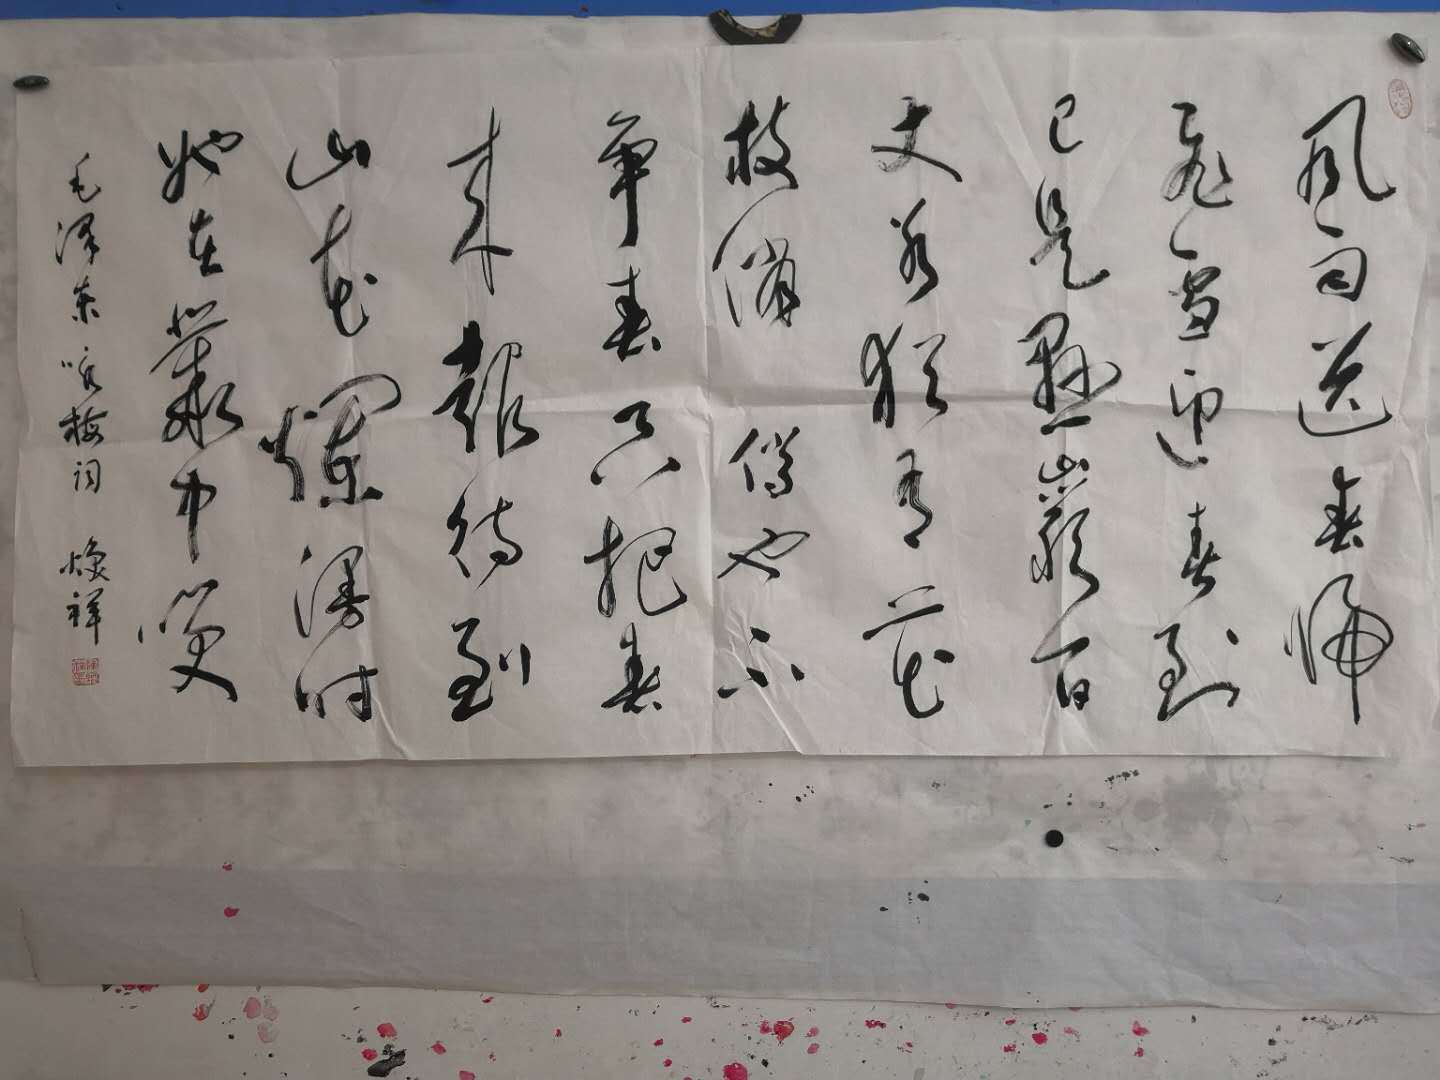 风雨送春歸
飛雪迎春到
已是懸巖百
丈冰猶有花
枝俏 俏也不
争春只把春
来報待到
山花爛漫时
她在叢中笑
毛泽东咏梅词 焕祥